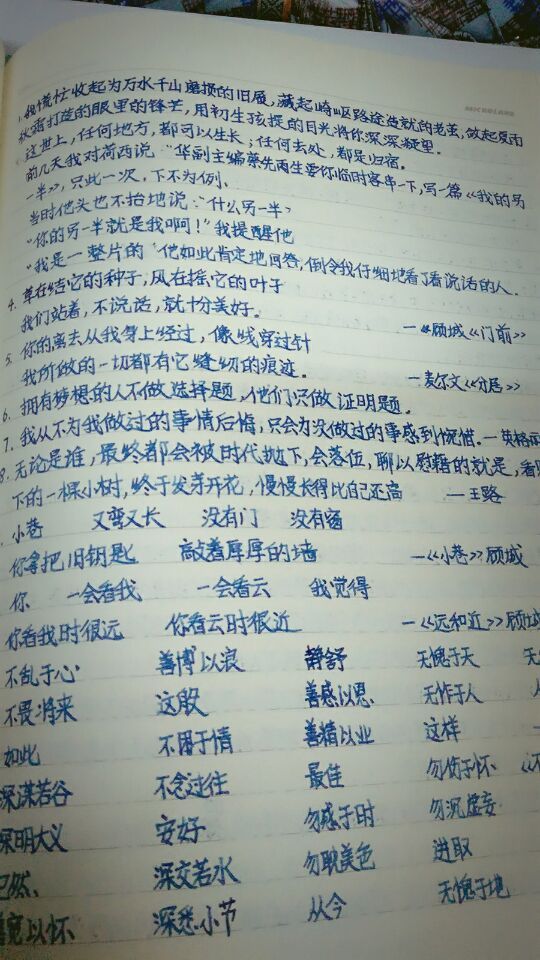 1.我慌忙收起为万水千山磨损的旧履,藏起崎岖路途造就的老茧,敛起夏雨
秋霜打造的眼里的锋芒,用初生孩提的目光将你深深凝望。
这世上,任何地方,都可以生长;任何去处,都是归宿。
前几天我对荷西说:“华副主编蔡先生要你临时客串一下,写一篇《我的另
一半》,只此一次,下不为例。
当时他头也不抬地说:“什么另一半?
“你的另一半就是我啊!”我提醒他
“我是一整片的”他如此肯定地回答,倒令我仔细地看了看说话的人.
4. 草在结它的种子,风在摇它的叶子
我们站着,不说话,就十分美好。 —《顾城《门前》
5. 你的离去从我身上经过,像线穿过针
我所做的一切都有它缝纫的痕迹。 —麦尔文《分居》
6. 拥有梦想的人不做选择题,他们只做证明题。
7. 我从不为我做过的事情后悔,只会为没做过的事感到惋惜.—英格丽
8. 无论是谁,最终都会被时代抛下,会落伍,聊以慰藉的就是,看
下的一棵小树,终于发芽开花,慢慢长得比自己还高 —王路
小巷 又弯又长 没有门 没有窗
你拿把旧钥匙 敲着厚厚的墙 —《小巷》顾城
你 一会看我 一会看云 我觉得
你看我时很远 你看云时很近 —《远和近》顾城
不乱于心 善博以浪 静舒 无愧于天 无
不畏将来 这般 善感以恩 无怍于人
如此 不困于情 善精以业 这样 一
深谋若谷 不念过往 最佳 勿伤于怀 《不
深明大义 安好 勿惑于时 勿沉虚妄
已然、 深交若水 勿耽美色 进取
善宽以怀 深悉小节 从今 无愧于地